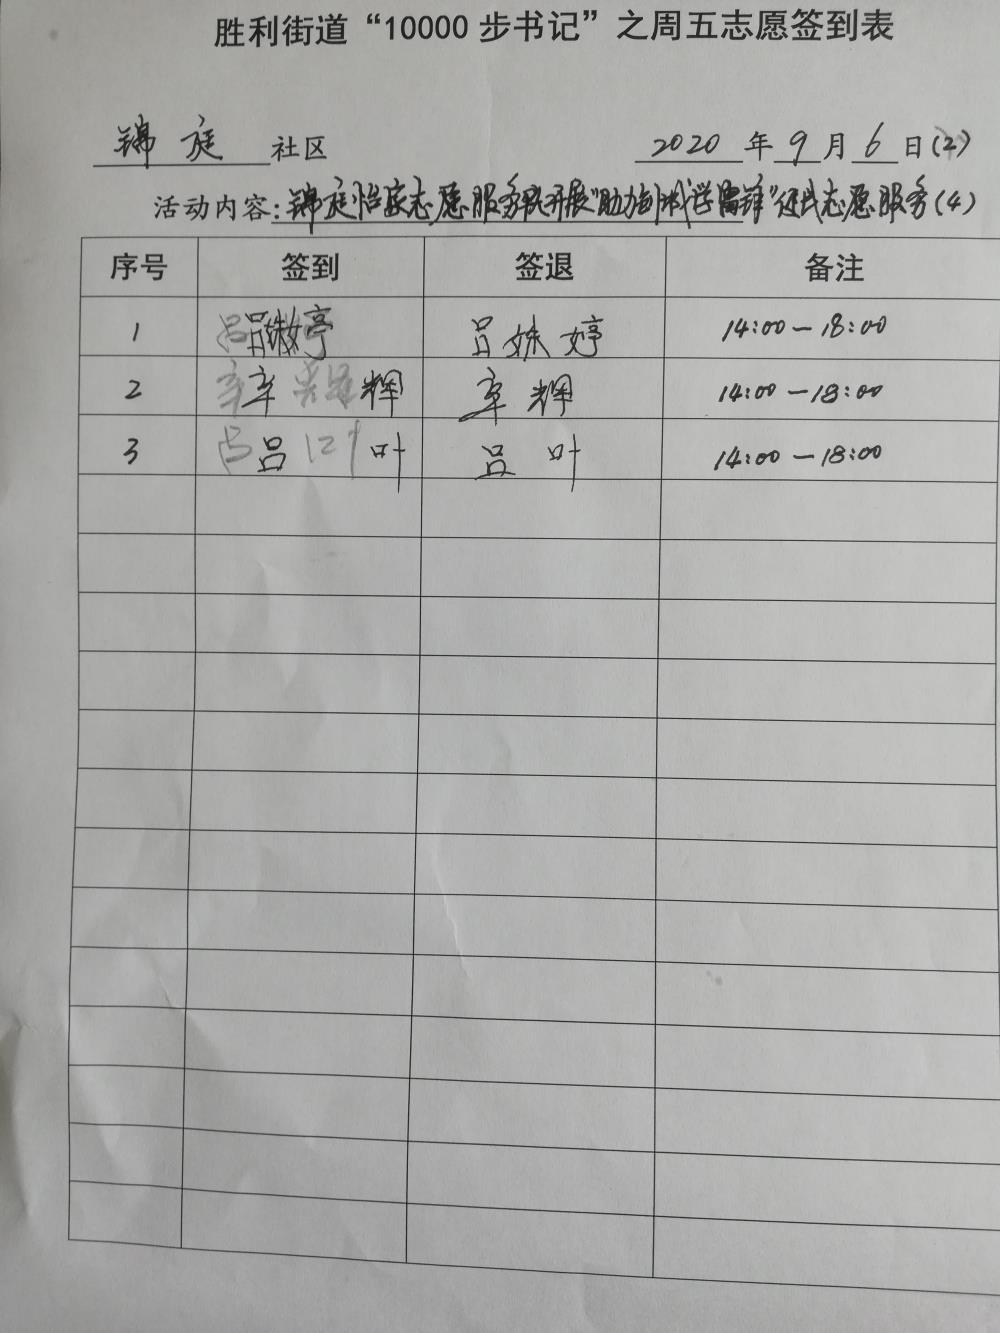 胜利街道“10000 步书记”之周五志愿签到表
锦庭 社区 2020 年 9 月 6 日(2)
活动内容:锦庭怡家志愿服务队开展“助力创城学雷锋”迁民志愿服务(4)
序号 签到 签退 备注
1 吕姝婷 吕姝婷 14:00—18:00
2 辛辉 辛辉 14:00—18:00
3 吕叶 吕叶 14:00—18:00